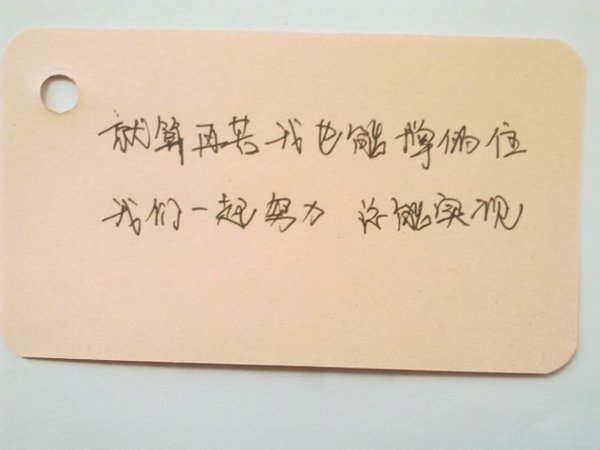 就算再苦我也能撑得住
我们一起努力 都能实现